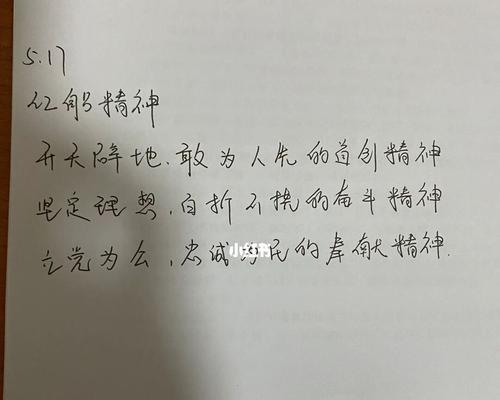 5.17
红船精神
开天辟地、敢为人先的首创精神
坚定理想、百折不挠的奋斗精神
立党为公、忠诚为民的奉献精神.
小红书